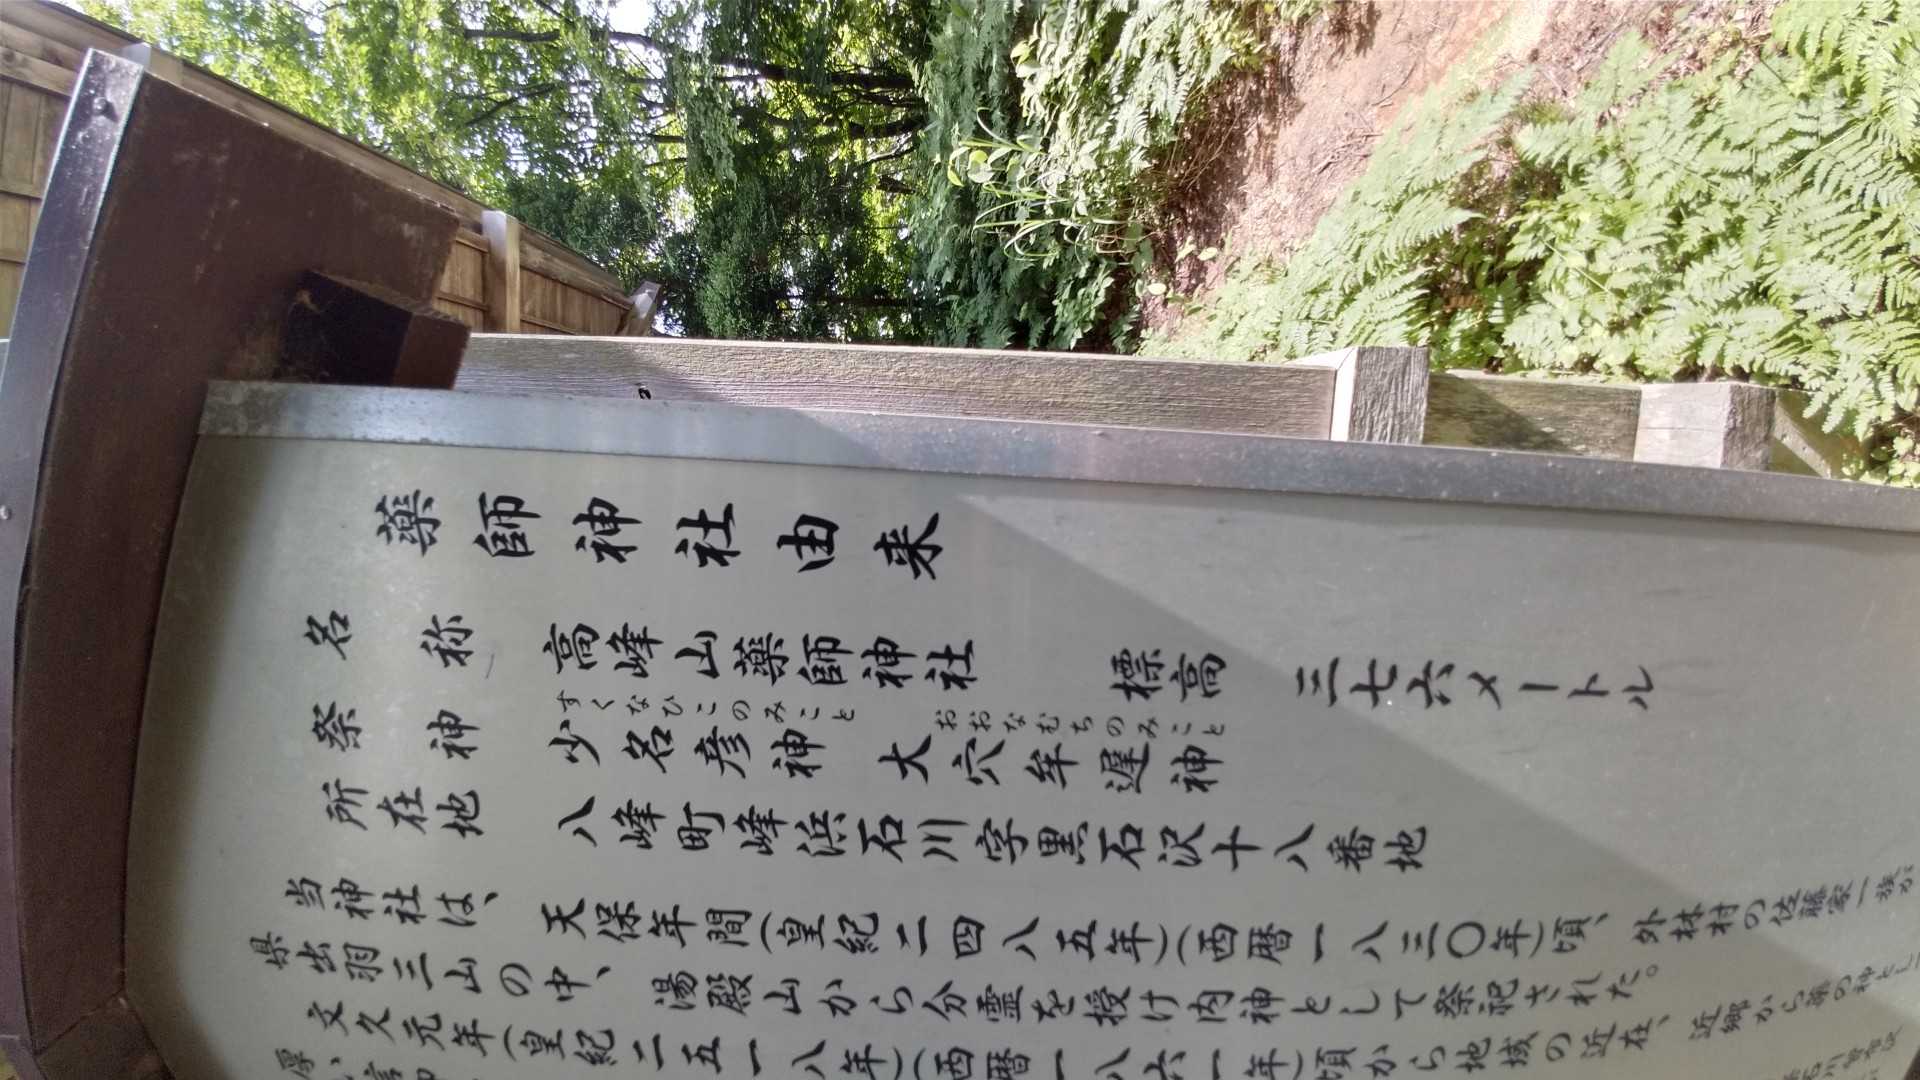 薬師神社由来
名称 高峰山薬師神社 標高 三七六メートル
すくなひこのみこと おおなむちのみこと
祭神 少名彦神 大穴牟遅神
所在地 八峰町峰浜石川字黒石沢十八番地
当神社は、天保年間(皇紀二四八五年)(西暦一八三〇年)頃、外林村の佐藤家一族が
県出羽三山の中、湯殿山から分霊を授け内神として祭祀された。
文久元年(皇紀二五一八年)(西暦一八六一年)頃から地域の近在、近郷から